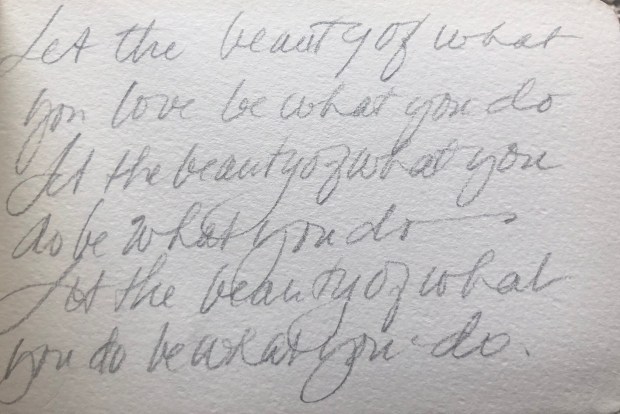 Let the beauty of what
you love be what you do
Let the beauty of what you
do be what you do
Let the beauty of what
you do be what you do.